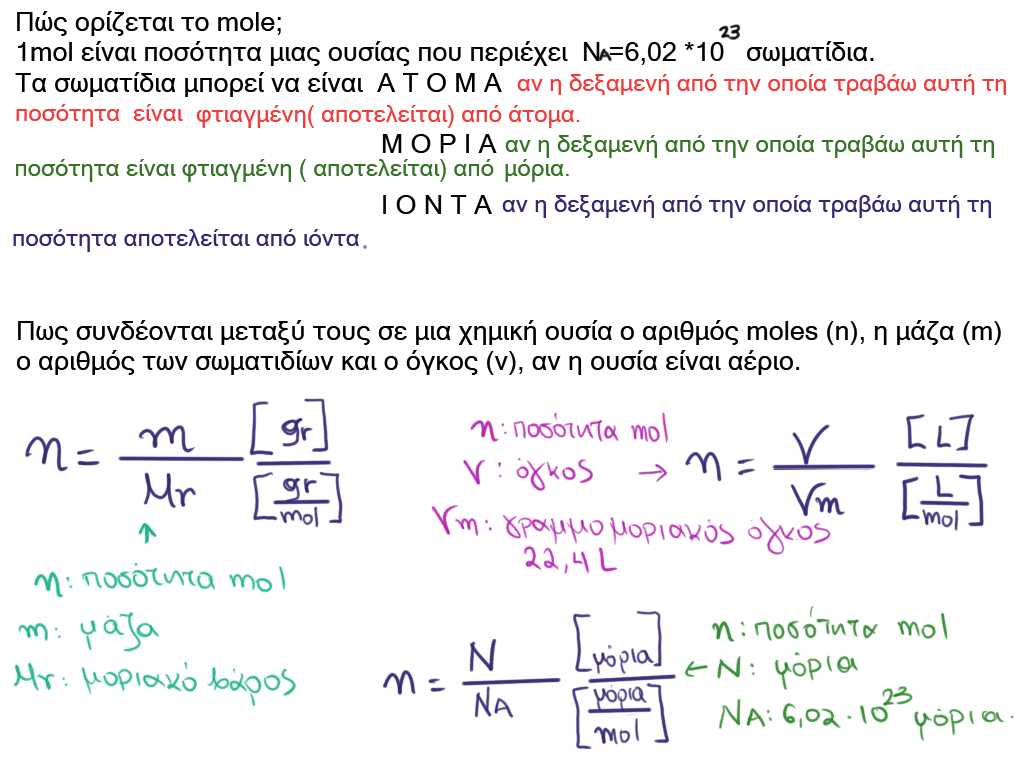 Πώς ορίζεται το mole;
1mol είναι ποσότητα μιας ουσίας που περιέχει NA=6,02 *10^23 σωματίδια.
Τα σωματίδια μπορεί να είναι Α Τ Ο Μ Α αν η δεξαμενή από την οποία τραβάω αυτή τη
ποσότητα είναι φτιαγμένη( αποτελείται) από άτομα.
Μ Ο Ρ Ι Α αν η δεξαμενή από την οποία τραβάω αυτή τη
ποσότητα είναι φτιαγμένη ( αποτελείται) από μόρια.
Ι Ο Ν Τ Α αν η δεξαμενή από την οποία τραβάω αυτή τη
ποσότητα αποτελείται από ιόντα.
Πως συνδέονται μεταξύ τους σε μια χημική ουσία ο αριθμός moles (n), η μάζα (m)
ο αριθμός των σωματιδίων και ο όγκος (v), αν η ουσία είναι αέριο.
n = m / Mr [gr] / [gr/mol]
↑
n: ποσότητα mol
m: μάζα
Mr: μοριακό βάρος
n: ποσότητα mol
V: όγκος → n = V / Vm [L] / [L/mol]
Vm: γραμμομοριακός όγκος
22,4 L
n = N / NA [μόρια] / [μόρια/mol]
n: ποσότητα mol
← N: μόρια
NA: 6,02 · 10^23 μόρια.